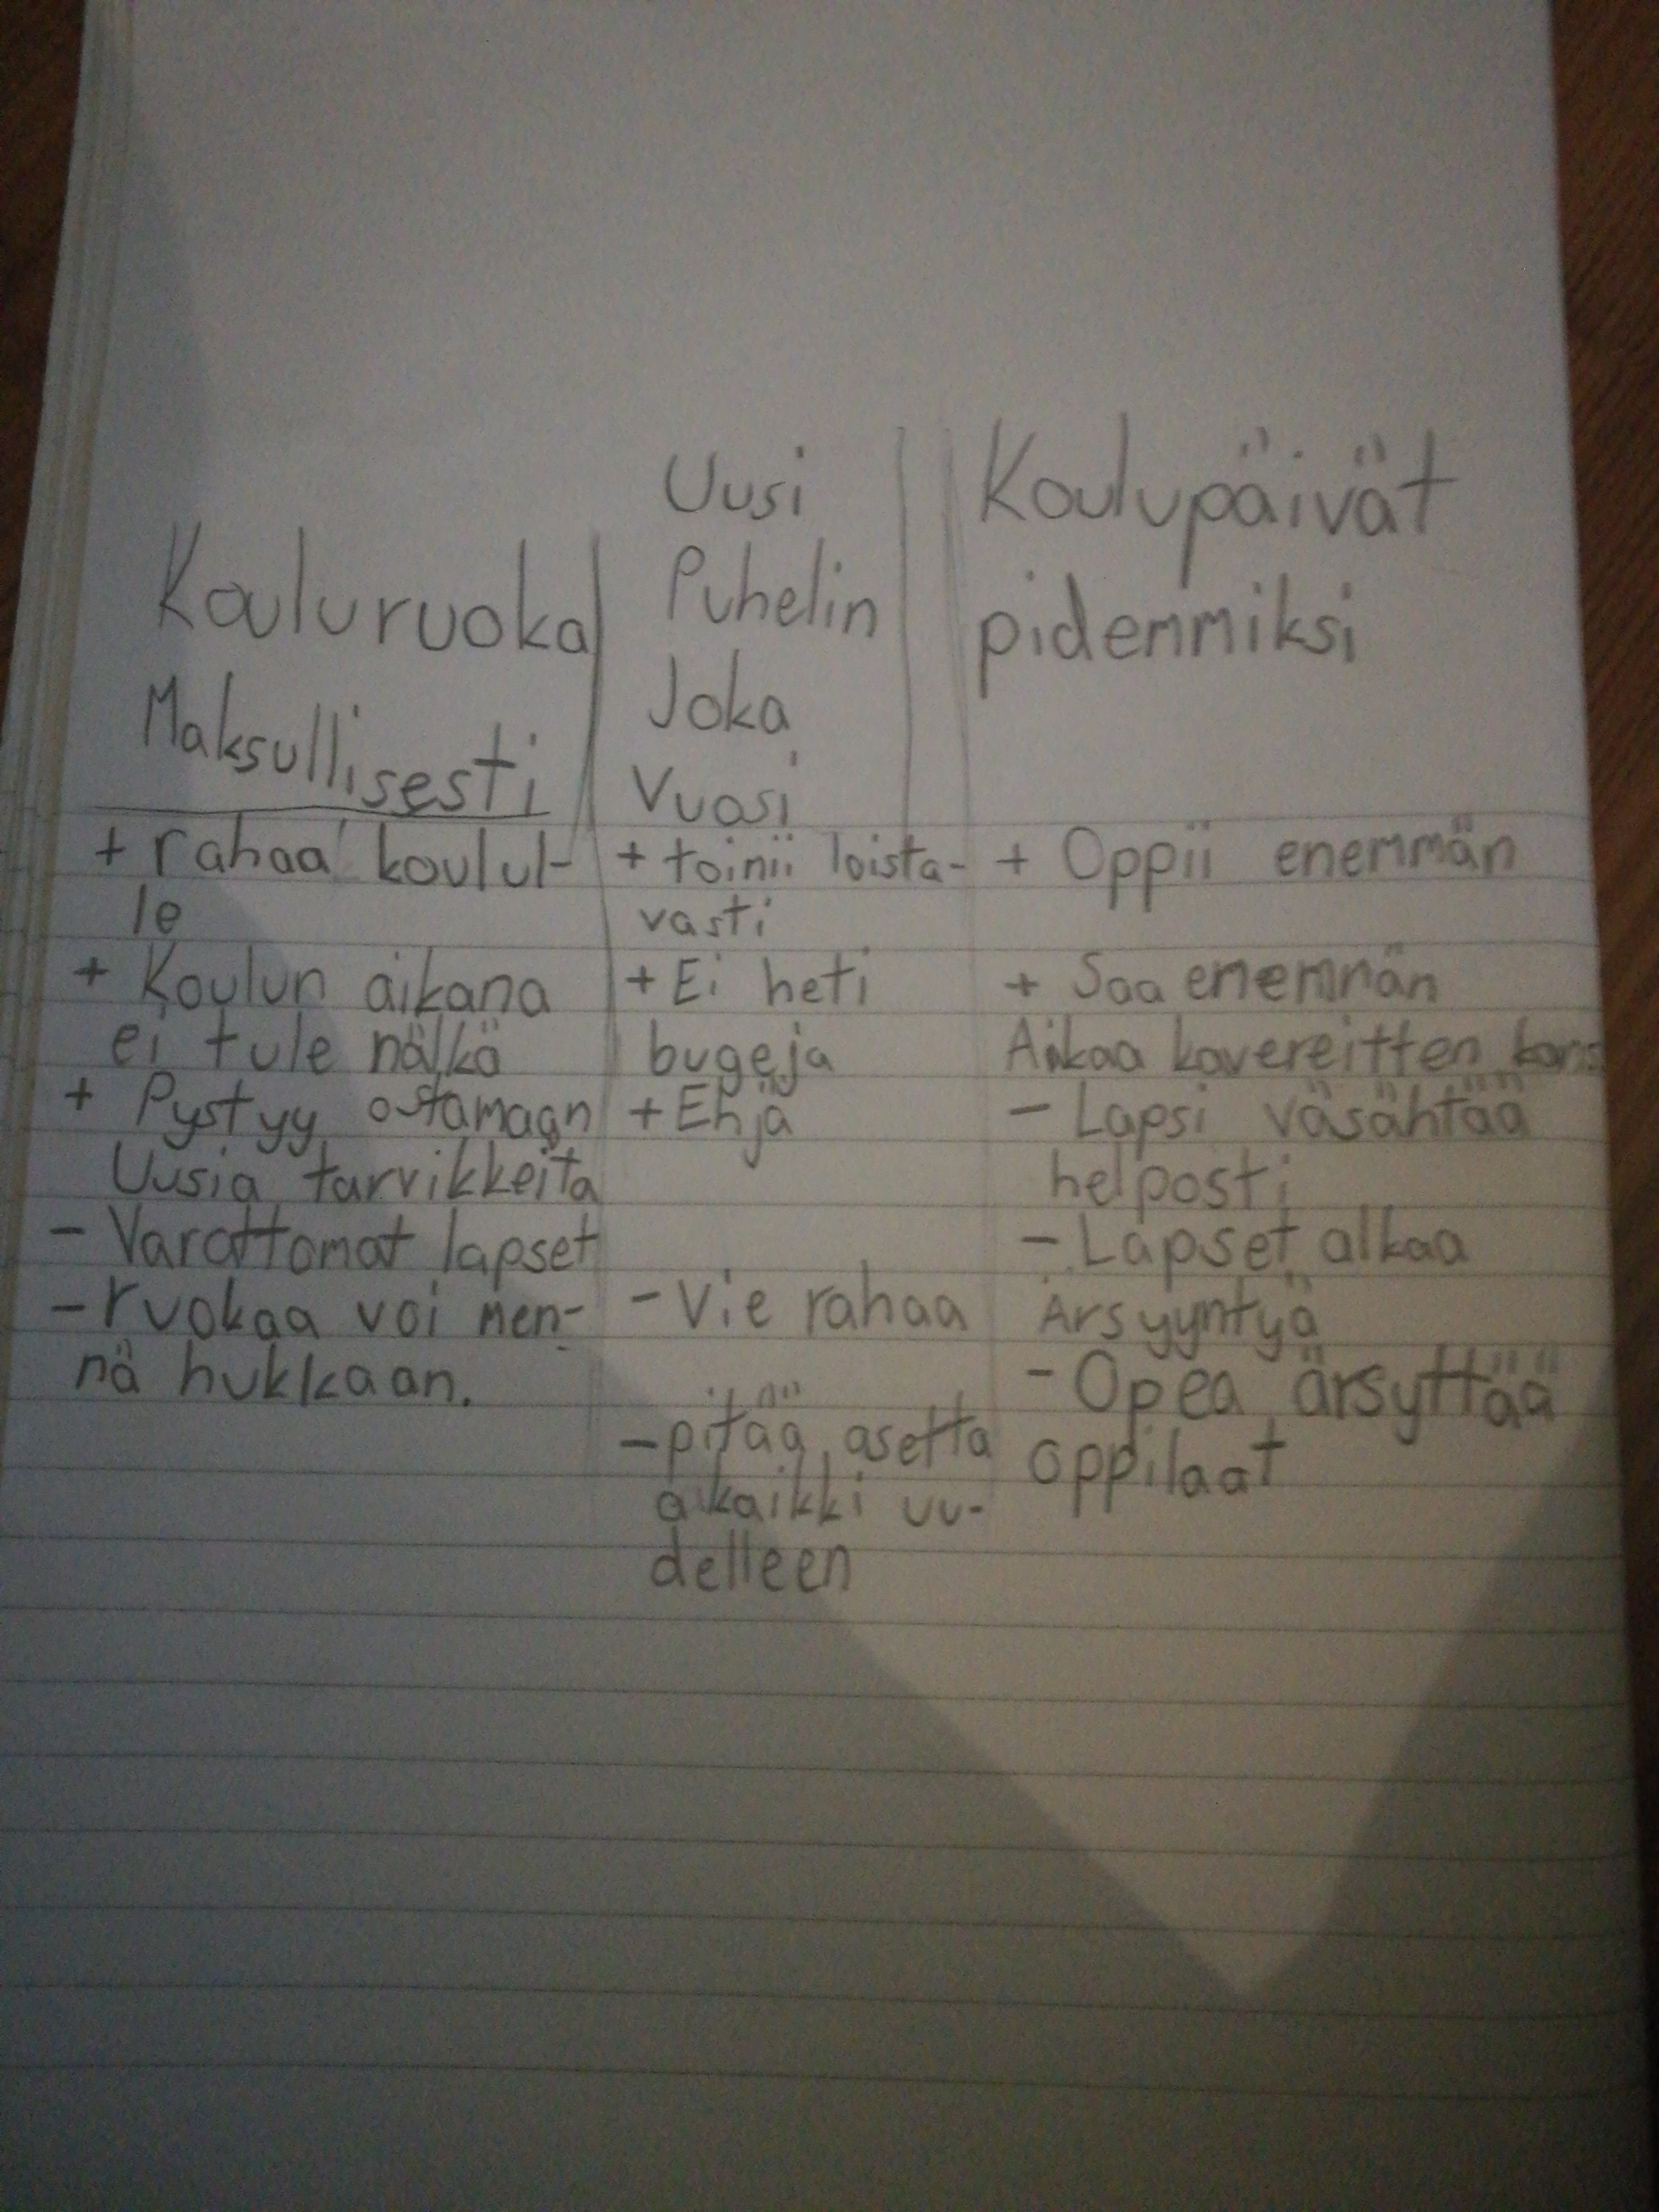 Kouluruoka
Maksullisesti
+ rahaa koulul-
le
+ Koulun aikana
ei tule nälkä
+ Pystyy ostamaan
Uusia tarvikkeita
- Varattomat lapset
- ruokaa voi men-
nä hukkaan.
Uusi
Puhelin
Joka
Vuosi
+ toinii loista-
vasti
+ Ei heti
bugeja
+ Ehjä
- Vie rahaa
- pitää asetta
a kaikki uu-
delleen
Koulupäivät
pidemmiksi
+ Oppii enemmän
+ Saa enemmän
Aikaa kavereitten kans
- Lapsi väsähtää
helposti
- Lapset alkaa
Ärsyyntyä
- Opea ärsyttää
oppilaat